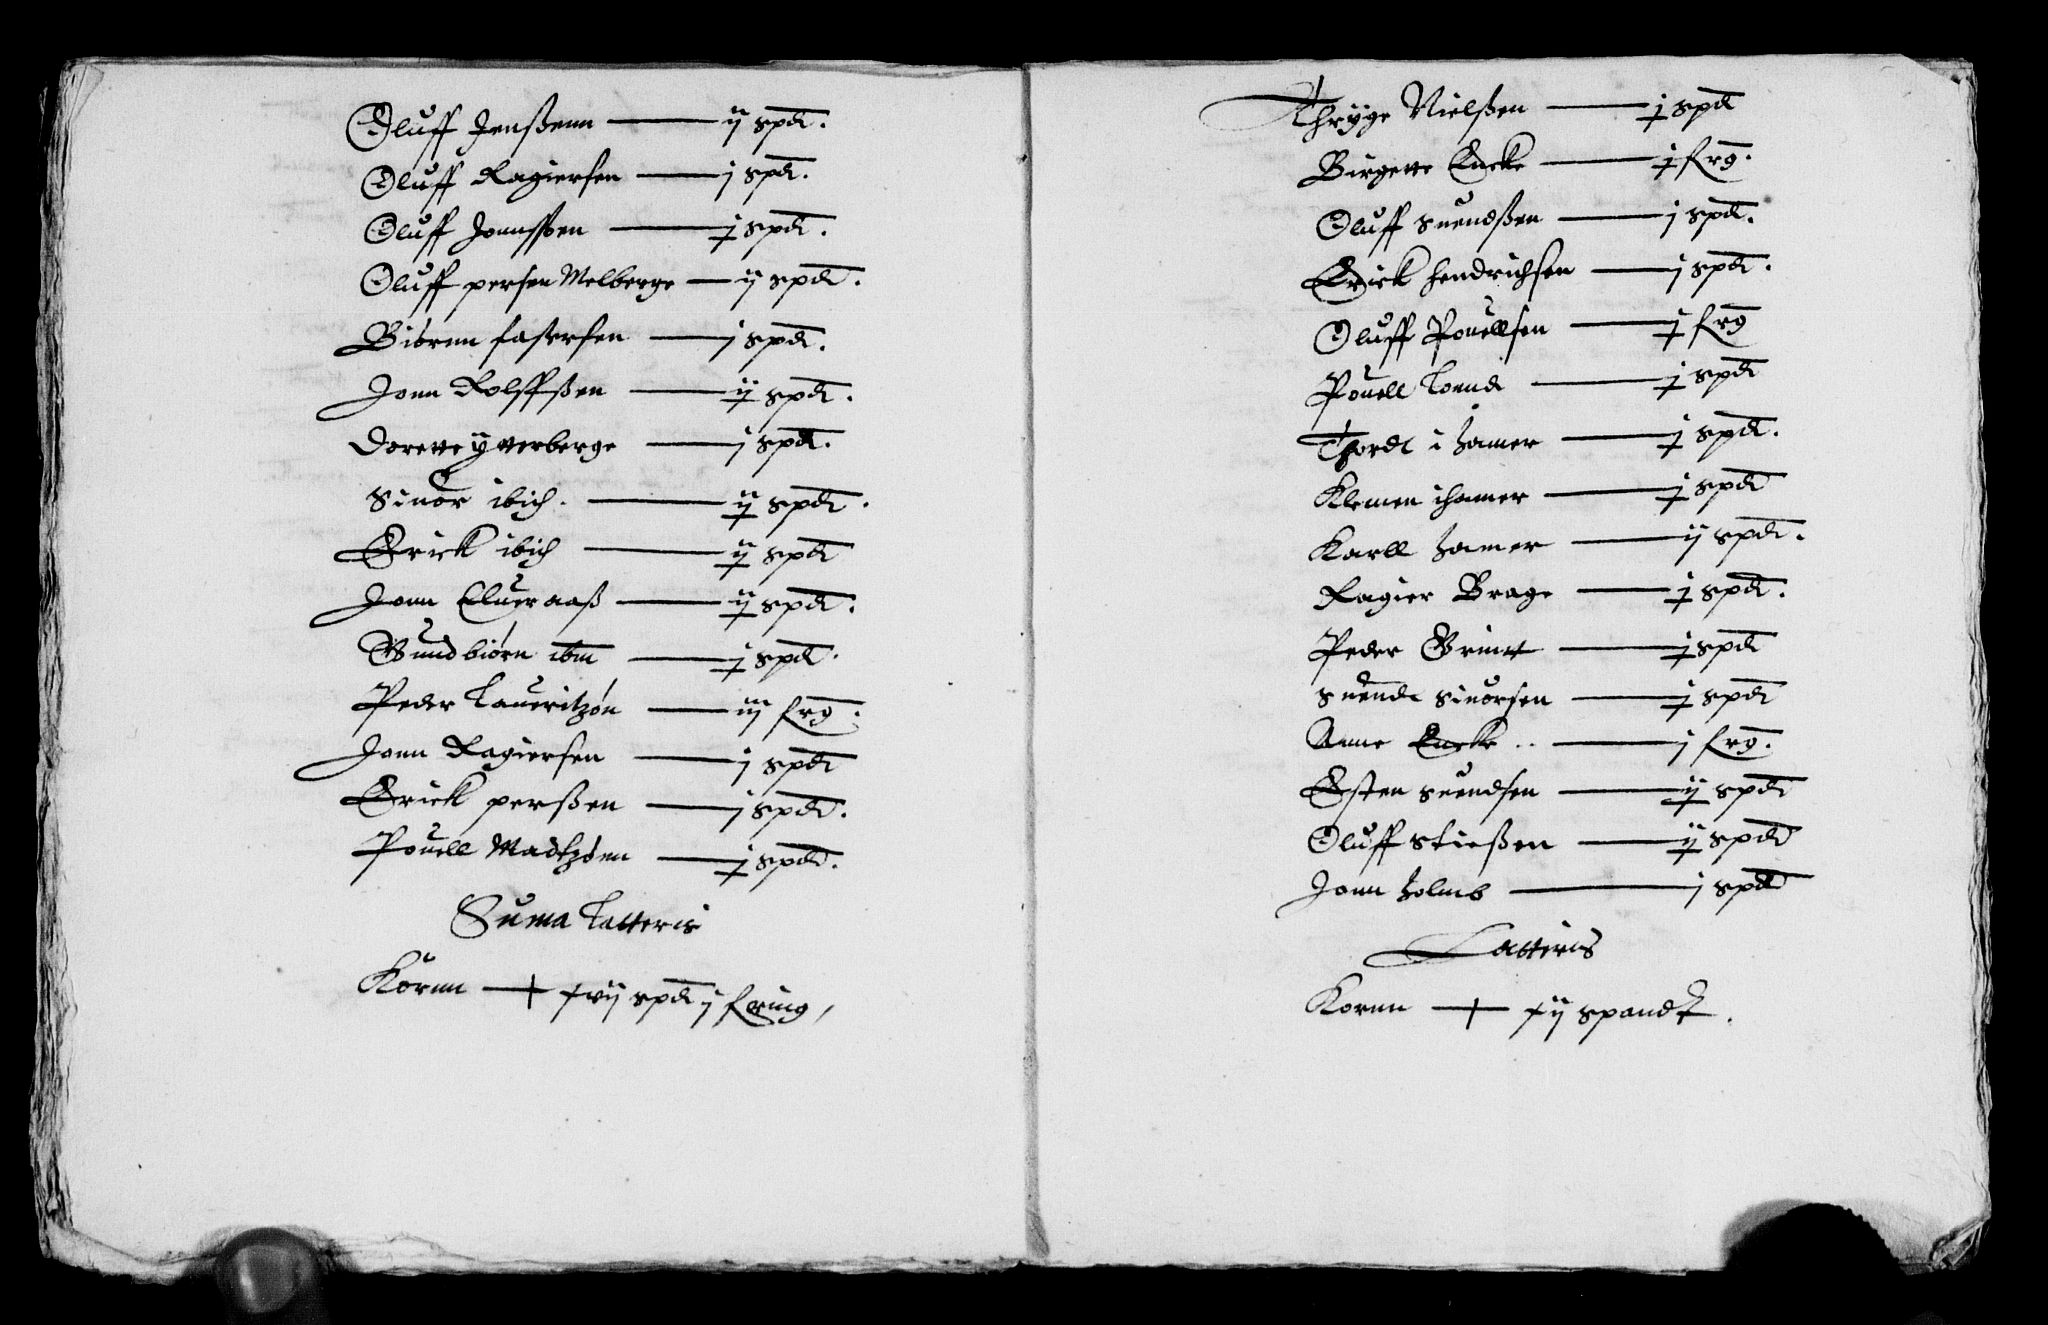 Oluff Jenßenn —— ij spd.
Oluff Ragiersen —— j spd.
Oluff Jonnssøen —— j spd.
Oluff persen Melberge — ij spd.
Biörnn fastersen —— j spd.
Jonn Rolffßen —— ij spd.
Dorette ytterberge —— j spd.
Sinør ibid. —— ij spd.
Erick ibid —— ij spd
Jonn Elueraaß —— ij spd.
Gundbiörn ibm —— j spd.
Peder Laueritzøn —— iij frg.
Jonn Ragiersen —— j spd
Erick perßen —— j spd.
Pouell Madtzønn —— j spd.
Suma Latteris
Kornn —— xvij spd j fering,
Thryge Nielßen —— j spd
Birgette Encke —— j frg.
Oluff Suendßen —— j spd.
Erick hendrichsen —— j spd.
Oluff Pouellsen —— j frg
Pouell Lound —— j spd
Thord i hamer —— j spd.
Klemen ihamer —— j spd
Karll hamer —— ij spd.
Ragier Brage —— j spd.
Peder Grintt —— j spd
Suend Sinørsen —— j spd
Anne Encke .. —— j frg.
Esten Suendsen —— ij spd
Oluff Stießen —— ij spd
Jonn holmb —— j spd
Latteris
Kornn —— xij spandt.